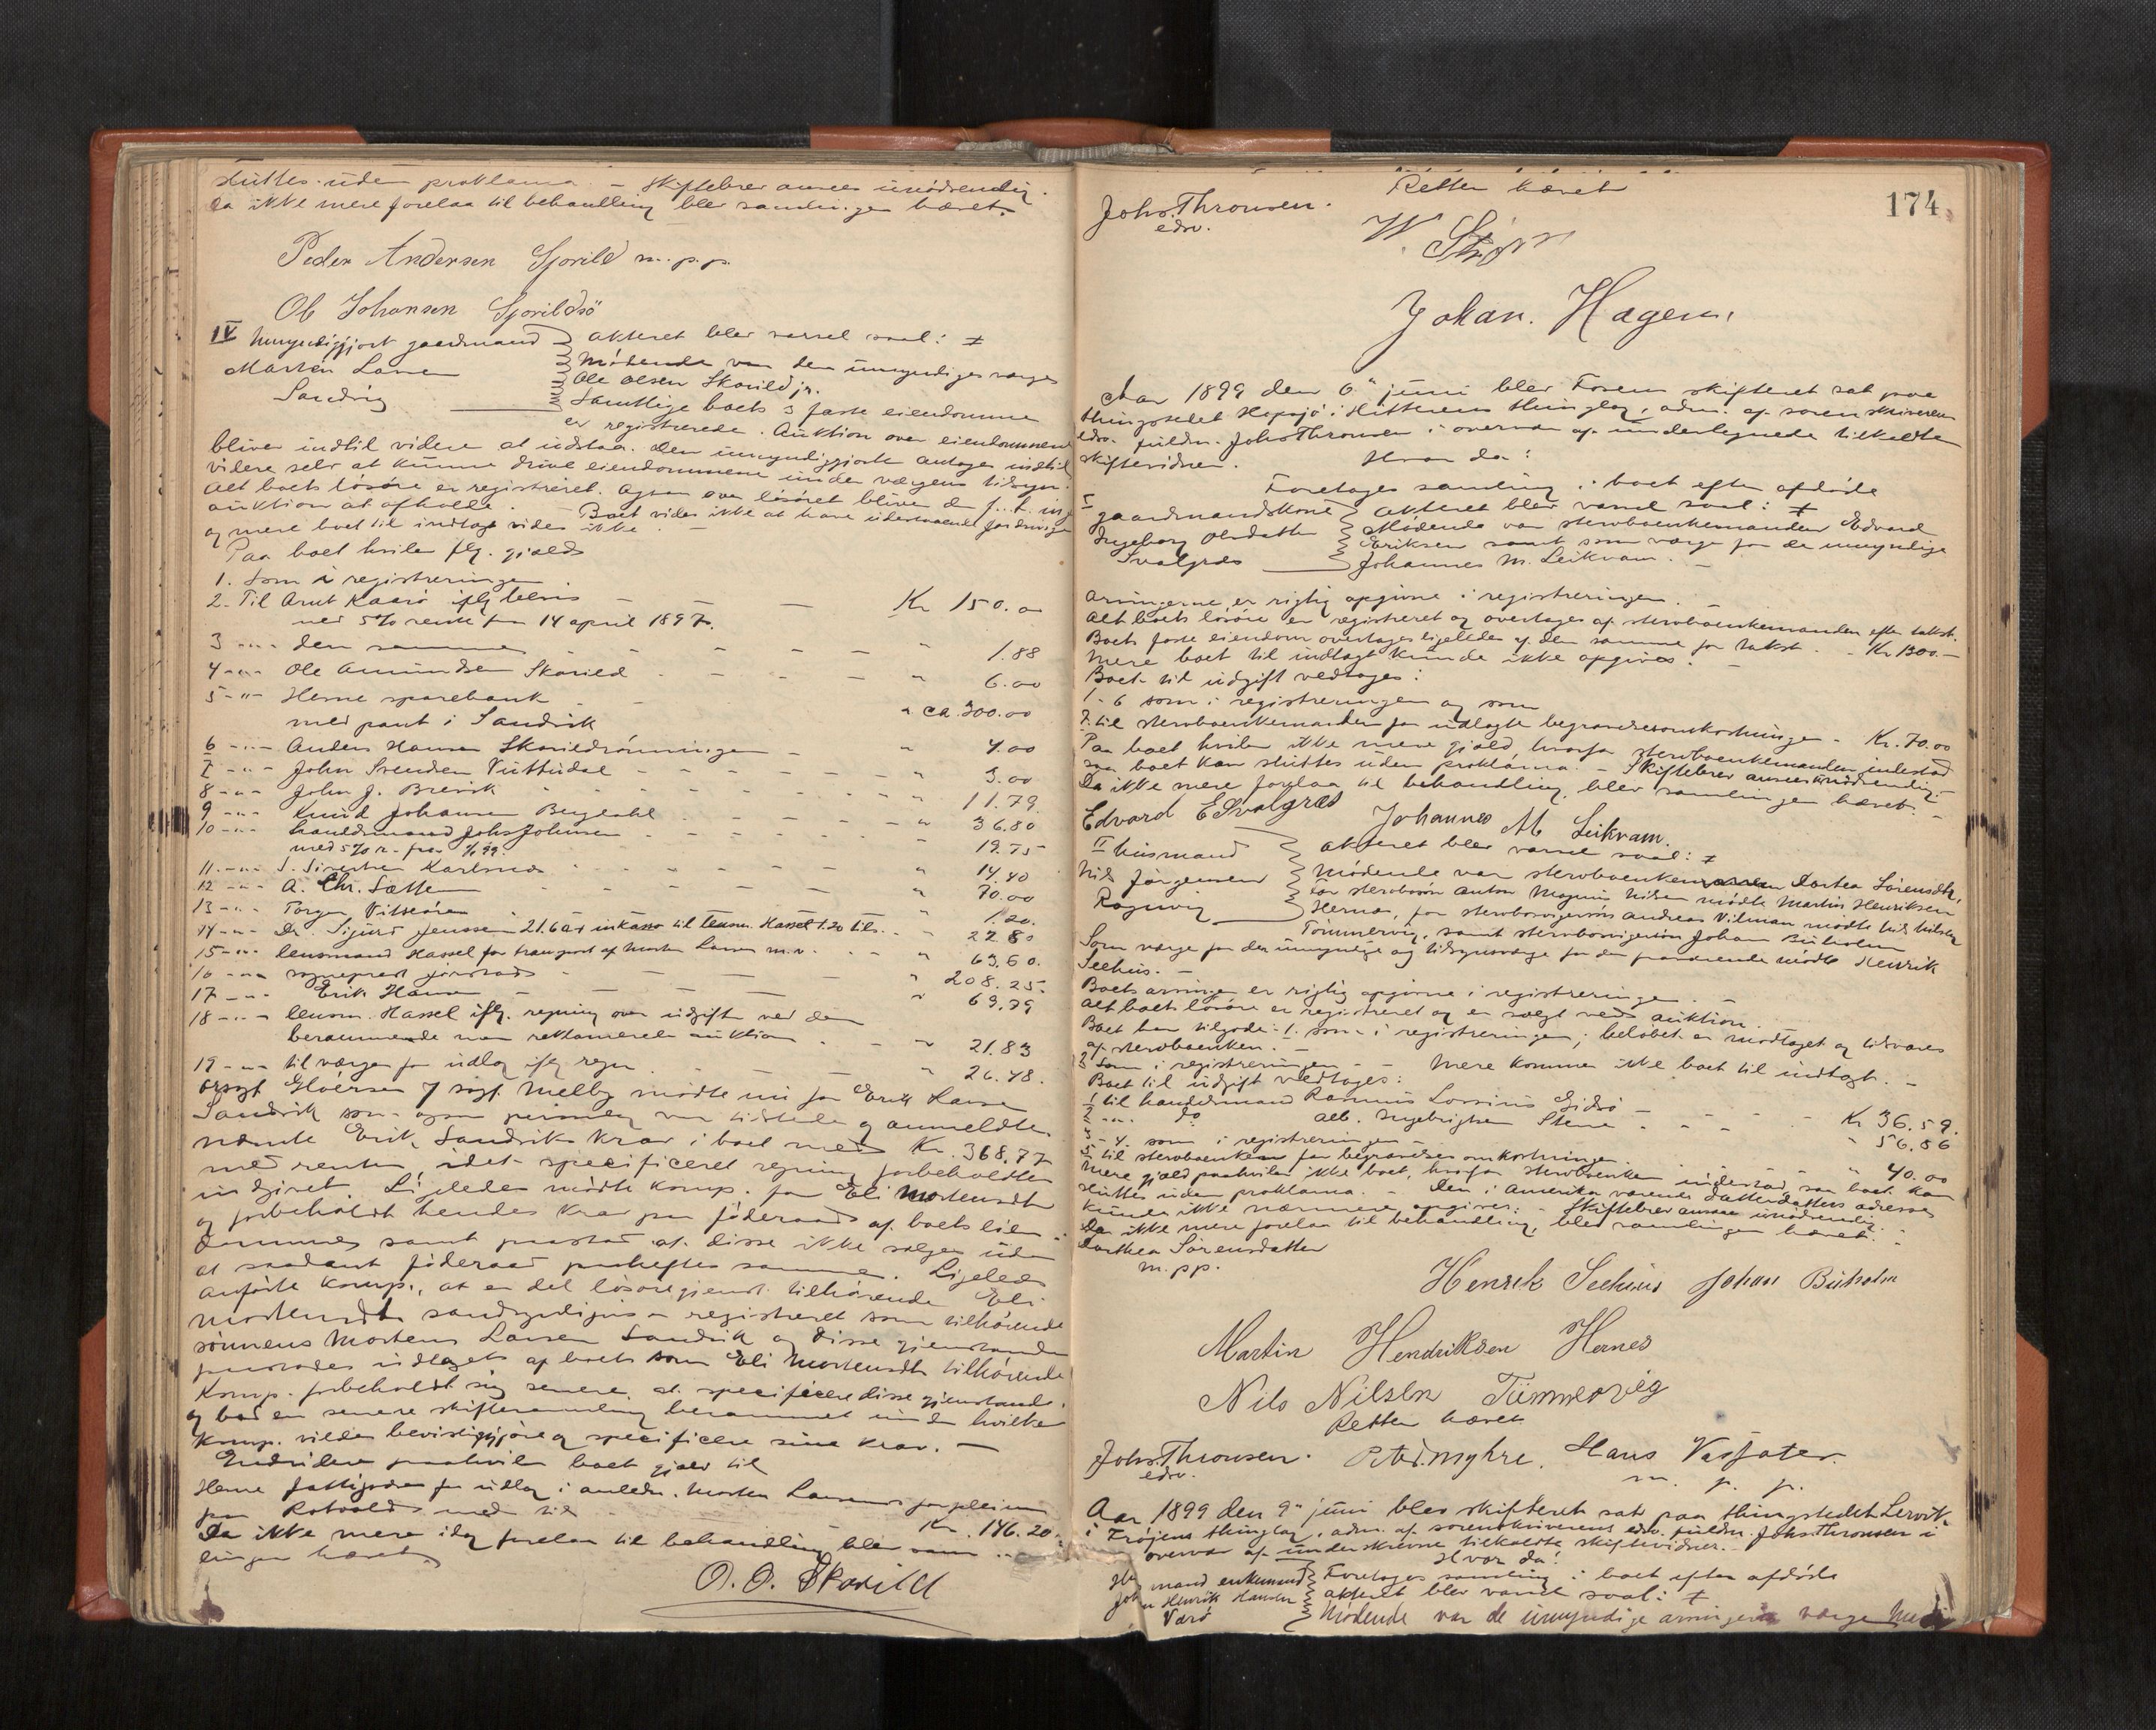 sluttes uden proklama. - Skiftebrev ansees unødvendig.
Da ikke mere forelaa til behandling blev samlingen hævet.
Peder Andersen Gjorild m.p.p.
Ole Johansen Gjorildsö
IV Umyndiggjort gaardmand
Morten Larsen
Sandvig
Akteret blev varsel saal: ‡
Mödende var den umyndiges værge
Ole Olsen Skarild jr.
Samtlige boets 3 faste eiendomme
er registrerede. Auktion over eiendommene
bliver indtil videre at udstaa. Den umyndiggjorte antages indtil
videre selv at kunne drive eiendommene under værgens tilsyn.
Alt boets lösöre er registreret. Ogsaa over lösöret bliver d. f. t. ing
auktion at afholde. - Boet vides ikke at have udestaaende fordringer
og mere boet til indtægt vides ikke.
Paa boet hviler flg. gjæld
1. Som i registreringen
2. Til Arnt Kaarö iflg bevis - - - Kr 150.00
med 5% rente fra 14 april 1897.
3 -"- den samme - - - - - " 1.88
4 -"- Ole Amundsen Skarild - - - " 6.00
5 -"- Hemne sparebank - - - " ca. 300.00
med pant i Sandvik
6 -"- Anders Hansen Skarildrönningen - " 4.00
7 -"- John Svendsen Vuttudal - - - - " 3.00
8 -"- John J. Brevik - - - - " 11.79.
9 -"- Knud Johansen Bergdahl - - - " 36.80
10 -"- handelsmand Johs Johnsen - - - " 19.75
med 5% r. fra 1/1 99.
11 -"- S. Sivertsen Karlsnes - - - " 14.40
12 -"- A. Chr. Sætter - - - - " 70.00
13 -"- Torger Vitsören - - - " 1.20.
14 -"- Dr. Sigurd Jenssen 21.60 + inkasso til lensm. Hassel 1.20 tils. - " 22.80
15 -"- lensmand Hassel for transport af Morten Larsen m.v. - " 69.60.
16 -"- sogneprest - - - - " 208.25.
17 -"- Erik Hansen - - - - " 69.79
18 -"- lensm. Hassel iflg. regning over udgifter ved den
berammede men reklamerede auktion - - " 21.83
19 -"- til værgen for udlæg iflg regn. - - - " 26.48.
Orsagf. Gløersen f sagf. Melby mödte nu for Erik Hansen
Sandvik som ogsaa personlig var tilstede og anmeldte
nævnte Erik Sandviks krav i boet med Kr. 368.77
med renter, idet specificeret regning forbeholdtes
indgivet. Ligeledes mödte komp. for Eli Mortensdt
og forbeholdt hendes krav paa föderaad af boets eien-
domme samt paastod at disse ikke sælges uden
at saadant föderaad paaheftes samme. Ligeledes
anförte komp., at en del lösöregjenst. tilhörende Eli
Mortensdt. sandsynligvis er registreret som tilhörende
sönnens Morten Larsen Sandvik og disse gjenstande
paastodes udtaget af boet som Eli Mortensdt. tilhörende
Komp. forbeholdt sig senere at specificere disse gjenstande
og bad en senere skiftesamling berammet inden hvilken
komp. vilde bevisliggjöre og specificere sine krav. -
Endvidere paahviler boet gjæld til
Hemne fattigvæsen for udlæg i anledn. Morten Larsens forpleining
paa Rotvold med til Kr. 146.20.
Da ikke mere idag forelaa til behandling blev sam-
lingen hævet.
O. O. Skarild
174
Retten hævet
Johs. Thronsen.
edsv.
W. Strøm
Johan. Hagen.
Aar 1899 den 6" juni blev Fosens skifteret sat paa
thingstedet Hopsjö i Hitterens thinglag, adm. af sorenskriveren
edsv. fuldm. Johs Thronsen i overvær af undertegnede tilkaldte
skiftevidner. Hvor da:
Foretoges samling i boet efter afdöde
I gaardmandskone
Ingeborg Olsdatter
Svalgræs
Akteret blev varsel saal: ‡
Mödende var sterboenkemanden Edvard
Eriksen samt som værge for de umyndige
Johannes M. Leikvam. -
Arvingerne er rigtig opgivne i registreringen. -
Alt boets lösöre er registreret og overtages af sterboenkemanden efter takst.
Boets faste eiendom overtages ligeledes af den samme for takst. - Kr 1300.-
Mere boet til indtægt kunde ikke opgives. -
Boet til udgift vedtages:
1 - 6 som i registreringen og som
7. til sterboenkemanden for udlagte begravelsesomkostninger - Kr. 70.00
Paa boet hviler ikke mere gjæld, hvorfor sterboenkemanden indestod
saa boet kan sluttes uden proklama. - Skiftebrev ansees unødvendig. -
Da ikke mere forelaa til behandling, blev samlingen hævet. -
Edvard E Svalgræs Johannes M Leikvam.
II husmand
Nils Jörgensen
Rognvig
Akteret blev varsel saal: ‡
Mödende var sterboenken Dortea Sörensdtr,
For sterbosön Anton Magnus Nilsen mödte Martin Henriksen
Hernes, for sterbosvigersön Andreas Vilman mödte Nils Nilsen
Tömmervig, samt sterbosvigersön Johan Buholm
Som værge for den umyndige og tilsynsværge for den fraværende mödte Henrik
Seehus. -
Boets arvinger er rigtig opgivne i registreringen. -
Alt boets lösöre er registreret og er solgt ved auktion.
Boet har tilgode: 1. som i registreringen; belöbet er modtaget og tilsvares
af sterboenken. -
2 Som i registreringen - - Mere kommer ikke boet til indtægt. -
Boet til udgift vedtages:
1 til handelsmand Rasmus Lossius Gidsö - - - - Kr 36.59.
2 -"- do Alb. Ingebrigtsen Stene - - - " 56.86
3 - 4. som i registreringen -
5 til sterboenken for begravelsesomkostninger - " 40.00
Mere gjæld paahviler ikke boet, hvorfor sterboenken indestod, saa boet kan
sluttes uden proklama. - Den i Amerika værende datterdatters adresse
kunde ikke nærmere opgives. - Skiftebrev ansees unødvendig. -
Da ikke mere forelaa til behandling, blev samlingen hævet. -
Dorthea Sörensdatter
m.pp.
Henrik Seehuus Johan Buholm
Martin Hendriksen Hernes
Nils Nilsen Tümmervig
Retten hævet
Johs. Thronsen. Peter Myhre. Hans Vasfater.
edsv. m. p. p.
Aar 1899 den 9" juni blev skifteret sat paa thingstedet Lervik
i Fröjens thinglag, adm. af sorenskriverens edsv. fuldm. Johs. Thronsen i
overvær af underskrevne tilkaldte skiftevidner. -
Hvor da:
mand enkemand
Henrik Hansen
Værö
Foretoges samling i boet efter afdöde
akteret blev varsel saal: ‡
Mödende var de umyndige arvingers værge